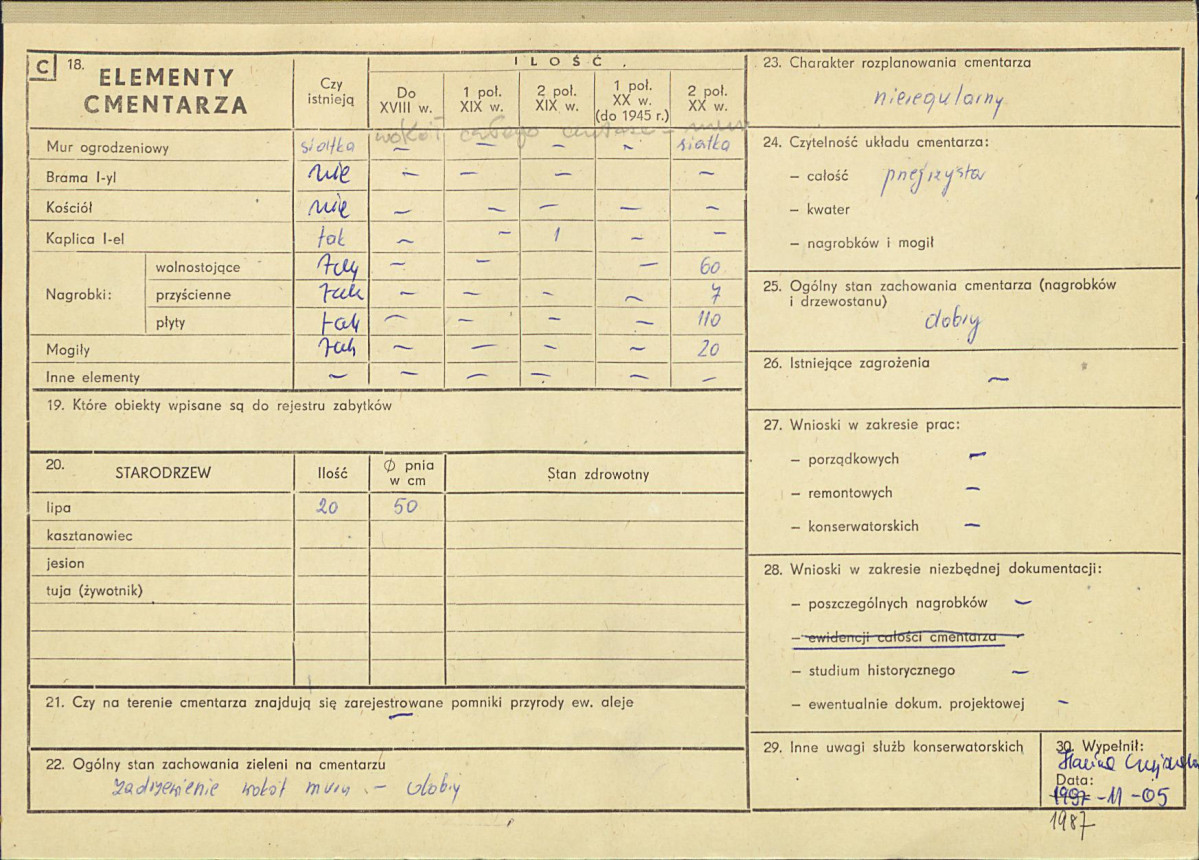 C 18. ELEMENTY CMENTARZA
Czy istnieją
ILOŚĆ
Do XVIII w.
1 poł. XIX w.
2 poł. XIX w.
1 poł. XX w. (do 1945 r.)
2 poł. XX w.
wokół całego
Mur ogrodzeniowy siatka – – – – siatka
Brama l-yl nie – – – –
Kościół nie – – – – –
Kaplica l-el tak – – 1 – –
Nagrobki:
wolnostojące tak – – – 60
przyścienne tak – – – – 7
płyty tak – – – – 110
Mogiły tak – – – – 20
Inne elementy – – – – – –
19. Które obiekty wpisane są do rejestru zabytków
20. STARODRZEW Ilość Ø pnia w cm Stan zdrowotny
lipa 20 50
kasztanowiec
jesion
tuja (żywotnik)
21. Czy na terenie cmentarza znajdują się zarejestrowane pomniki przyrody ew. aleje
–
22. Ogólny stan zachowania zieleni na cmentarzu
zadrzewienie wokół muru – dobry
23. Charakter rozplanowania cmentarza
nieregularny
24. Czytelność układu cmentarza:
– całość przejrzysta
– kwater
– nagrobków i mogił
25. Ogólny stan zachowania cmentarza (nagrobków
i drzewostanu)
dobry
26. Istniejące zagrożenia
–
27. Wnioski w zakresie prac:
– porządkowych –
– remontowych –
– konserwatorskich –
28. Wnioski w zakresie niezbędnej dokumentacji:
– poszczególnych nagrobków –
– ewidencji całości cmentarza
– studium historycznego –
– ewentualnie dokum. projektowej –
29. Inne uwagi służb konserwatorskich
30. Wypełnił:
Data:
1997-11-05
1987